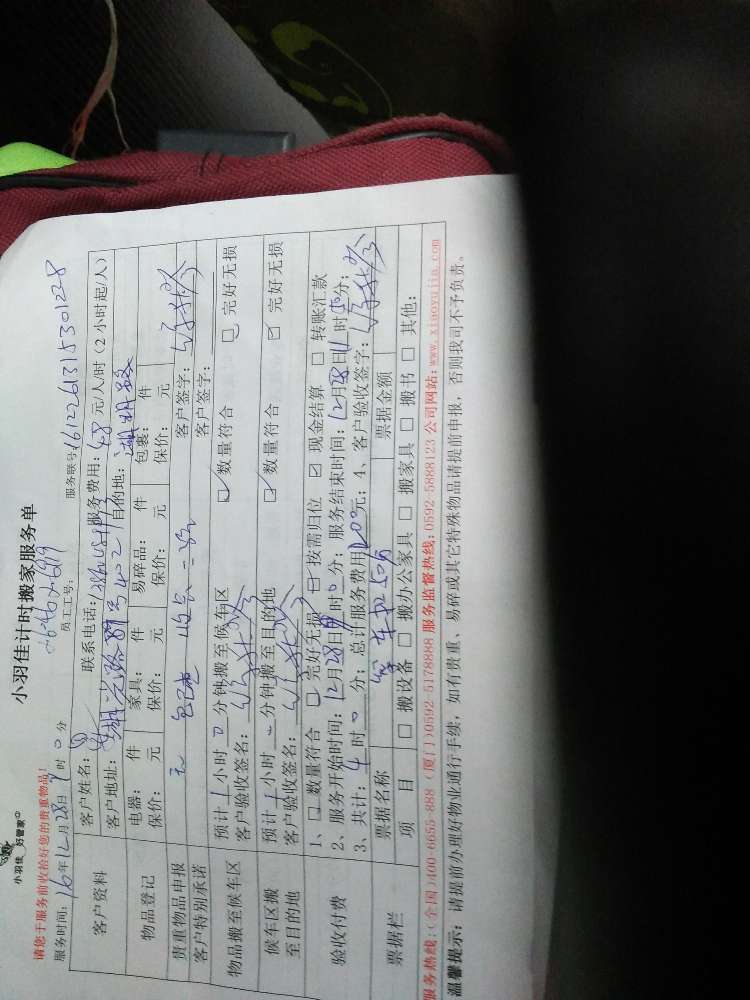 小羽佳 好管家
小羽佳计时搬家服务单
请您于服务前收拾好您的贵重物品!
服务时间: 16年12月28日 时0分 员工工号: 服务联号: 1612261315301228
客户资料 客户姓名: 联系电话: 服务费用: 48元/人/时(2小时起/人)
客户地址: 湖光路89号402 目的地: 湖明路
物品登记 电器: 件 家具: 件 易碎品: 件 包裹: 件
保价: 元 保价: 元 保价: 元 保价: 元
贵重物品申报 无 客户签字:
客户特别承诺 客户签字:
物品搬至候车区 预计1小时0分钟搬至候车区 ☑数量符合 □完好无损
客户验收签名:
候车区搬至目的地 预计1小时 分钟搬至目的地 ☑数量符合 ☑完好无损
客户验收签名:
验收付费 1、□数量符合 □完好无损 □按需归位 ☑现金结算 □转账汇款
2、服务开始时间: 12月28日 时0分; 服务结束时间: 12月28日 时 分;
3、共计: 4时0分; 总计服务费用 元; 4、客户验收签字:
票据栏 票据名称 票据金额
项 目 □搬设备 □搬办公家具 □搬家具 □搬书 □其他:
服务热线:(全国)400-6655-888 (厦门)0592-5178888 服务监督热线:0592-5888123 公司网站:www.xiaoyujia.com
温馨提示: 请提前办理好物业通行手续, 如有贵重、易碎或其它特殊物品请提前申报, 否则我司不予负责。